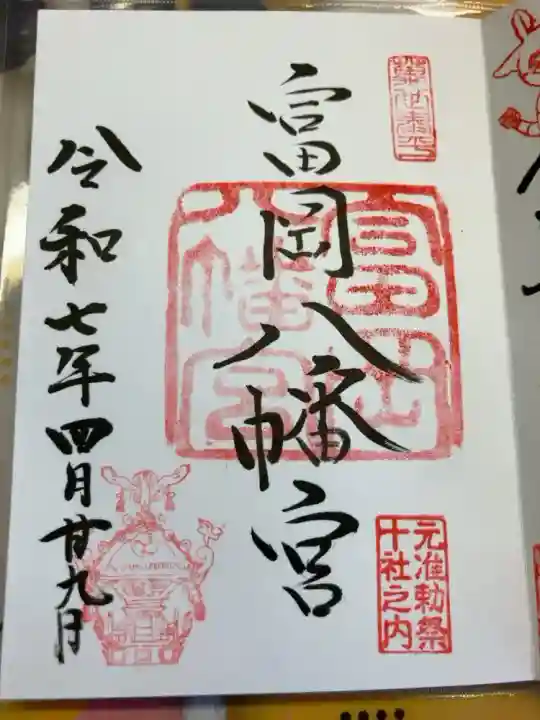 富岡八幡宮
元准勅祭
十社之内
富岡
八幡宮
令和七年四月廿九日